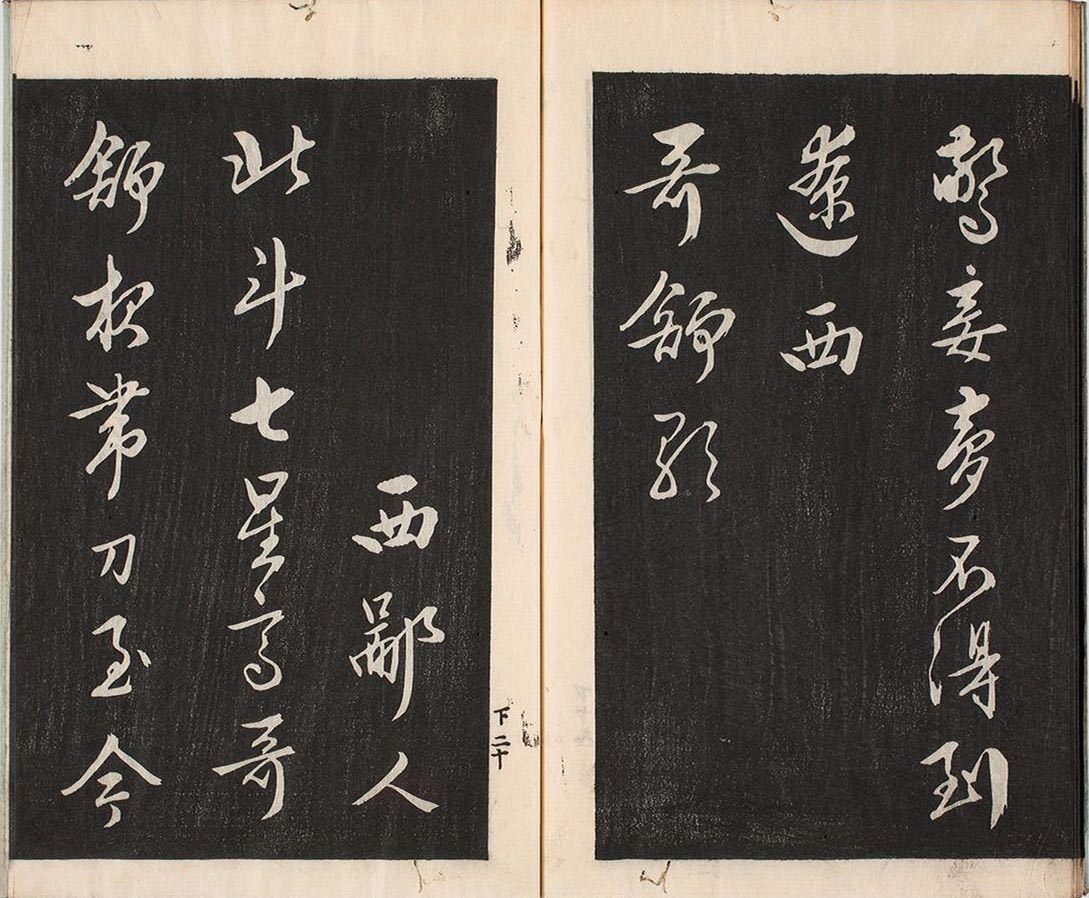 驚妾夢不得到
遼西
哥舒歌
西鄙人
北斗七星高哥
舒夜帶刀至今
下二十